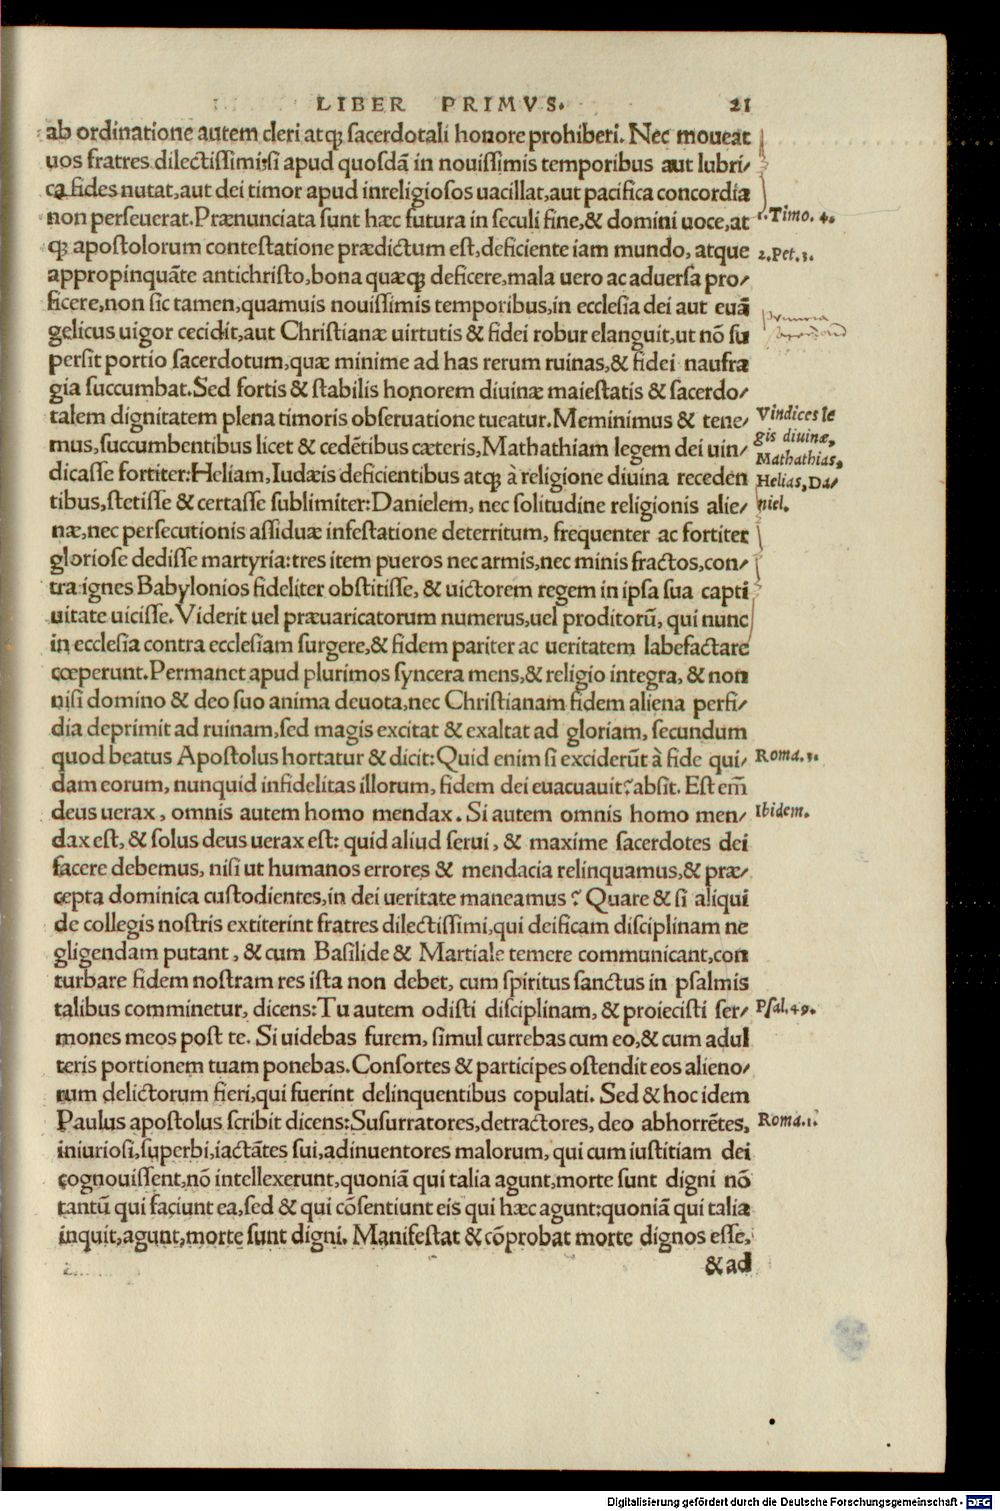 LIBER PRIMVS. 21
ab ordinatione autem cleri atqꝫ sacerdotali honore prohiberi. Nec moueat
uos fratres dilectissimi: si apud quosdã in nouissimis temporibus aut lubri/
ca fides nutat, aut dei timor apud inreligiosos uacillat, aut pacifica concordia
non perseuerat. Prænunciata sunt hæc futura in seculi fine, & domini uoce, at
1. Timo. 4.
qꝫ apostolorum contestatione prædictum est, deficiente iam mundo, atque
2. Pet. 3.
appropinquãte antichristo, bona quæqꝫ deficere, mala uero ac aduersa pro/
ficere, non sic tamen, quamuis nouissimis temporibus, in ecclesia dei aut euã
gelicus uigor cecidit, aut Christianæ uirtutis & fidei robur elanguit, ut nõ su
persit portio sacerdotum, quæ minime ad has rerum ruinas, & fidei naufra
gia succumbat. Sed fortis & stabilis honorem diuinæ maiestatis & sacerdo/
talem dignitatem plena timoris obseruatione tueatur. Meminimus & tene/
Vindices le
mus, succumbentibus licet & cedẽtibus cæteris, Mathathiam legem dei uin/
gis diuinæ,
Mathathias,
dicasse fortiter: Heliam, Iudæis deficientibus atqꝫ à religione diuina receden
Helias, Da/
tibus, stetisse & certasse sublimiter: Danielem, nec solitudine religionis alie/
niel.
næ, nec persecutionis assiduæ infestatione deterritum, frequenter ac fortiter
gloriose dedisse martyria: tres item pueros nec armis, nec minis fractos, con/
tra ignes Babylonios fideliter obstitisse, & uictorem regem in ipsa sua capti
uitate uicisse. Viderit uel præuaricatorum numerus, uel proditorũ, qui nunc
in ecclesia contra ecclesiam surgere, & fidem pariter ac ueritatem labefactare
cœperunt. Permanet apud plurimos syncera mens, & religio integra, & non
nisi domino & deo suo anima deuota, nec Christianam fidem aliena perfi/
dia deprimit ad ruinam, sed magis excitat & exaltat ad gloriam, secundum
quod beatus Apostolus hortatur & dicit: Quid enim si exciderũt à fide qui/
Roma. 3.
dam eorum, nunquid infidelitas illorum, fidem dei euacuauit? absit. Est em̃
deus uerax, omnis autem homo mendax. Si autem omnis homo men/
Ibidem.
dax est, & solus deus uerax est: quid aliud serui, & maxime sacerdotes dei
facere debemus, nisi ut humanos errores & mendacia relinquamus, & præ/
cepta dominica custodientes, in dei ueritate maneamus? Quare & si aliqui
de collegis nostris extiterint fratres dilectissimi, qui deificam disciplinam ne
gligendam putant, & cum Basilide & Martiale temere communicant, con
turbare fidem nostram res ista non debet, cum spiritus sanctus in psalmis
talibus comminetur, dicens: Tu autem odisti disciplinam, & proiecisti ser/
Psal. 49.
mones meos post te. Si uidebas furem, simul currebas cum eo, & cum adul
teris portionem tuam ponebas. Consortes & participes ostendit eos alieno/
rum delictorum fieri, qui fuerint delinquentibus copulati. Sed & hoc idem
Paulus apostolus scribit dicens: Susurratores, detractores, deo abhorrẽtes,
Roma. 1.
iniuriosi, superbi, iactãtes sui, adinuentores malorum, qui cum iustitiam dei
cognouissent, nõ intellexerunt, quoniã qui talia agunt, morte sunt digni nõ
tantũ qui faciunt ea, sed & qui cõsentiunt eis qui hæc agunt: quoniã qui talia
inquit, agunt, morte sunt digni. Manifestat & cõprobat morte dignos esse,
& ad
Digitalisierung gefördert durch die Deutsche Forschungsgemeinschaft - DFG